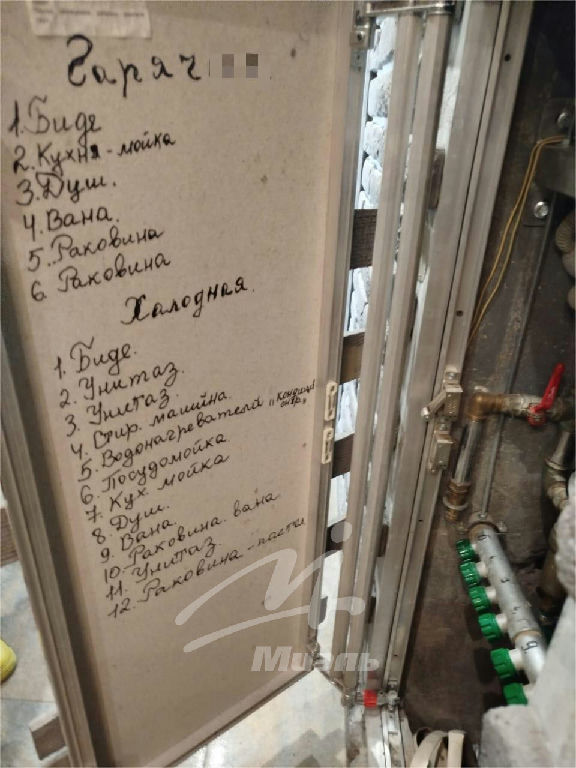 Гаряч
1. Биде
2. Кухня - мойка
3. Душ.
4. Вана.
5. Раковина
6. Раковина
Халодная.
1. Биде.
2. Унитаз.
3. Унитаз.
4. Стир. машина
5. Водонагреватель
6. Посудомойка
7. Кух. мойка
8. Душ.
9. Вана.
10. Раковина вана
11. Унитаз.
12. Раковина -
Миэль